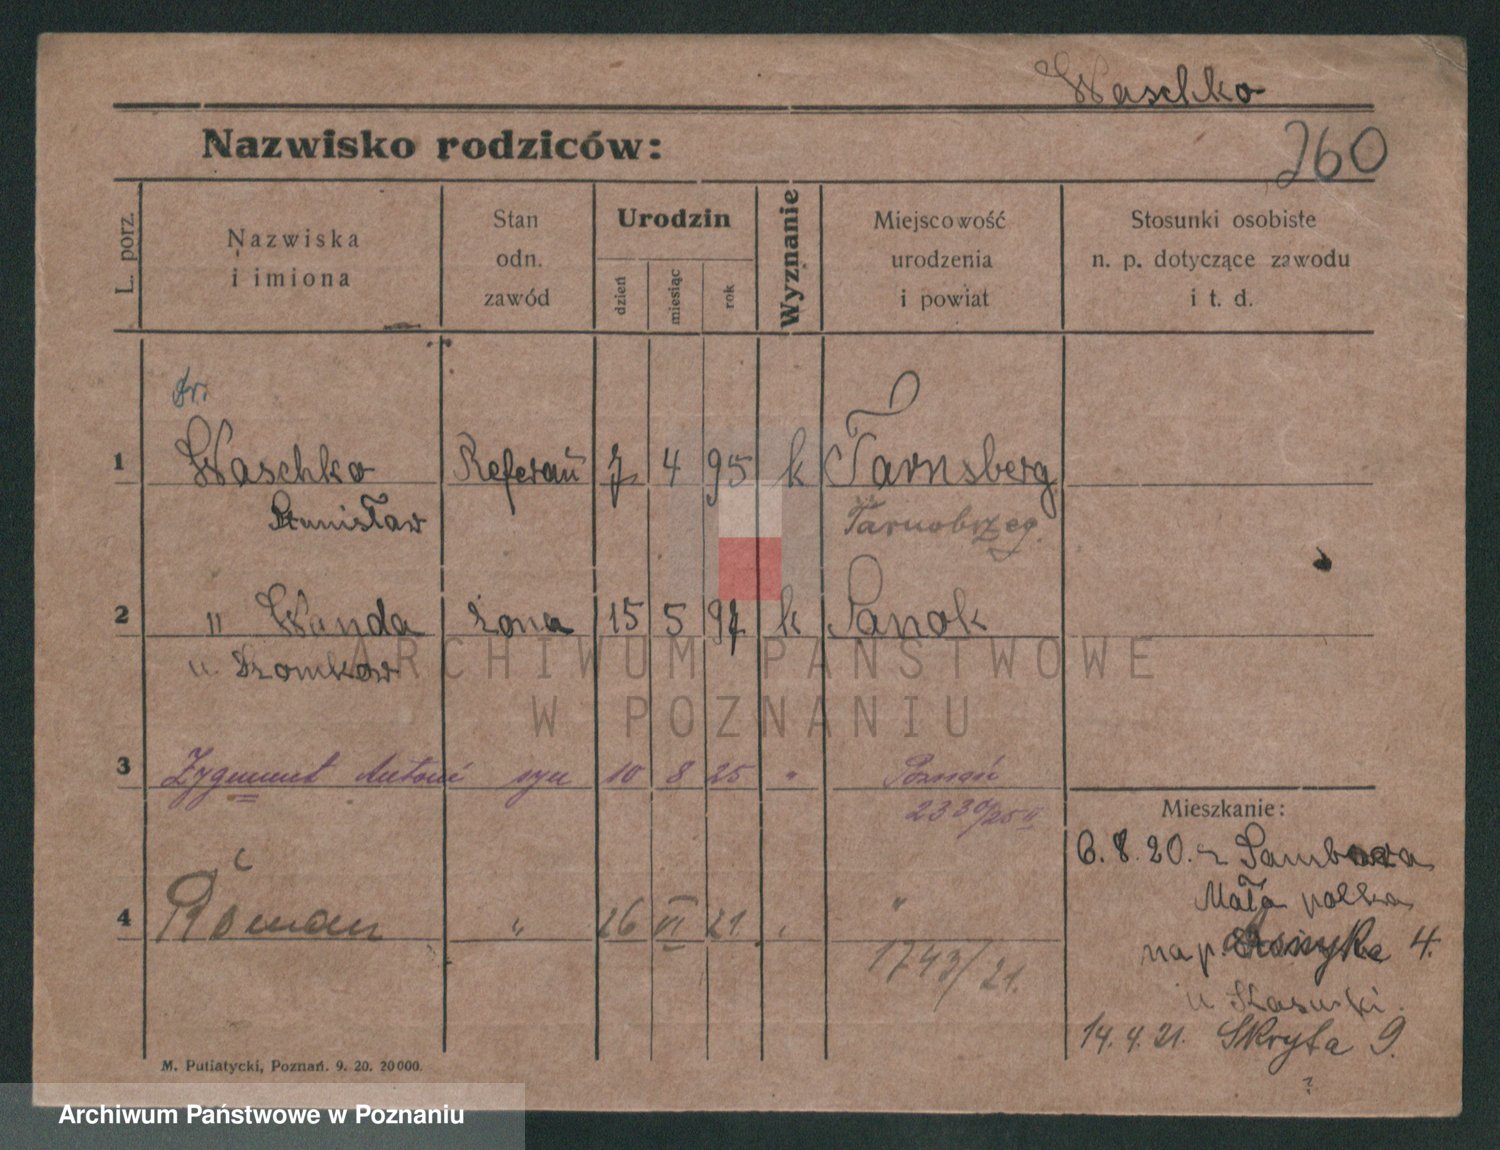 Waschko
Nazwisko rodziców:
260
L. porz.
Nazwiska
i imiona
Stan
odn.
zawód
Urodzin
dzień
miesiąc
rok
Wyznanie
Miejscowość
urodzenia
i powiat
Stosunki osobiste
n. p. dotyczące zawodu
i t. d.
Dr.
1 Waschko Referań 7 4 95 k Tarnsberg
Stanisław Tarnobrzeg.
2 " Wanda żona 15 5 97 k Sanok
u.
3 Zygmunt Antoni syn 10 8 25 " Poznań
2330/25 II
Mieszkanie:
6.8.20. z Sambora
Mała polska
4 Roman " 26 VI 21 " "
na p. 4.
1743/21.
u
14.4.21. Skryta 9.
?
M. Putiatycki, Poznań. 9. 20. 20000.
ARCHIWUM PAŃSTWOWE
W POZNANIU
Archiwum Państwowe w Poznaniu